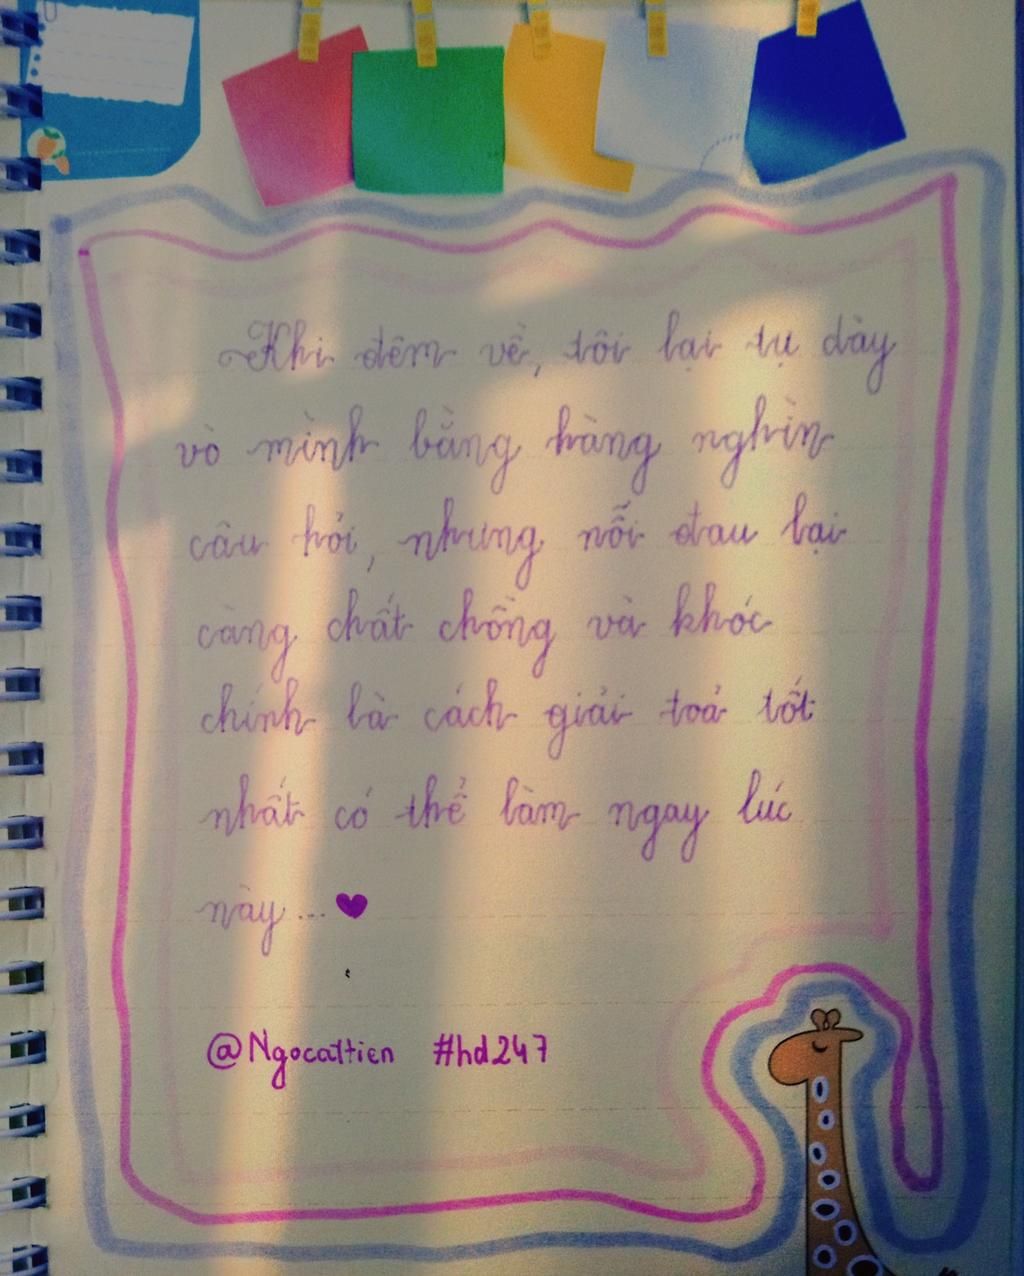 Khi đêm về, tôi lại tự dày
vò mình bằng hàng nghìn
câu hỏi, nhưng nỗi đau lại
càng chất chồng và khóc
chính là cách giải toả tốt
nhất có thể làm ngay lúc
này...
@Ngocattien #hd247